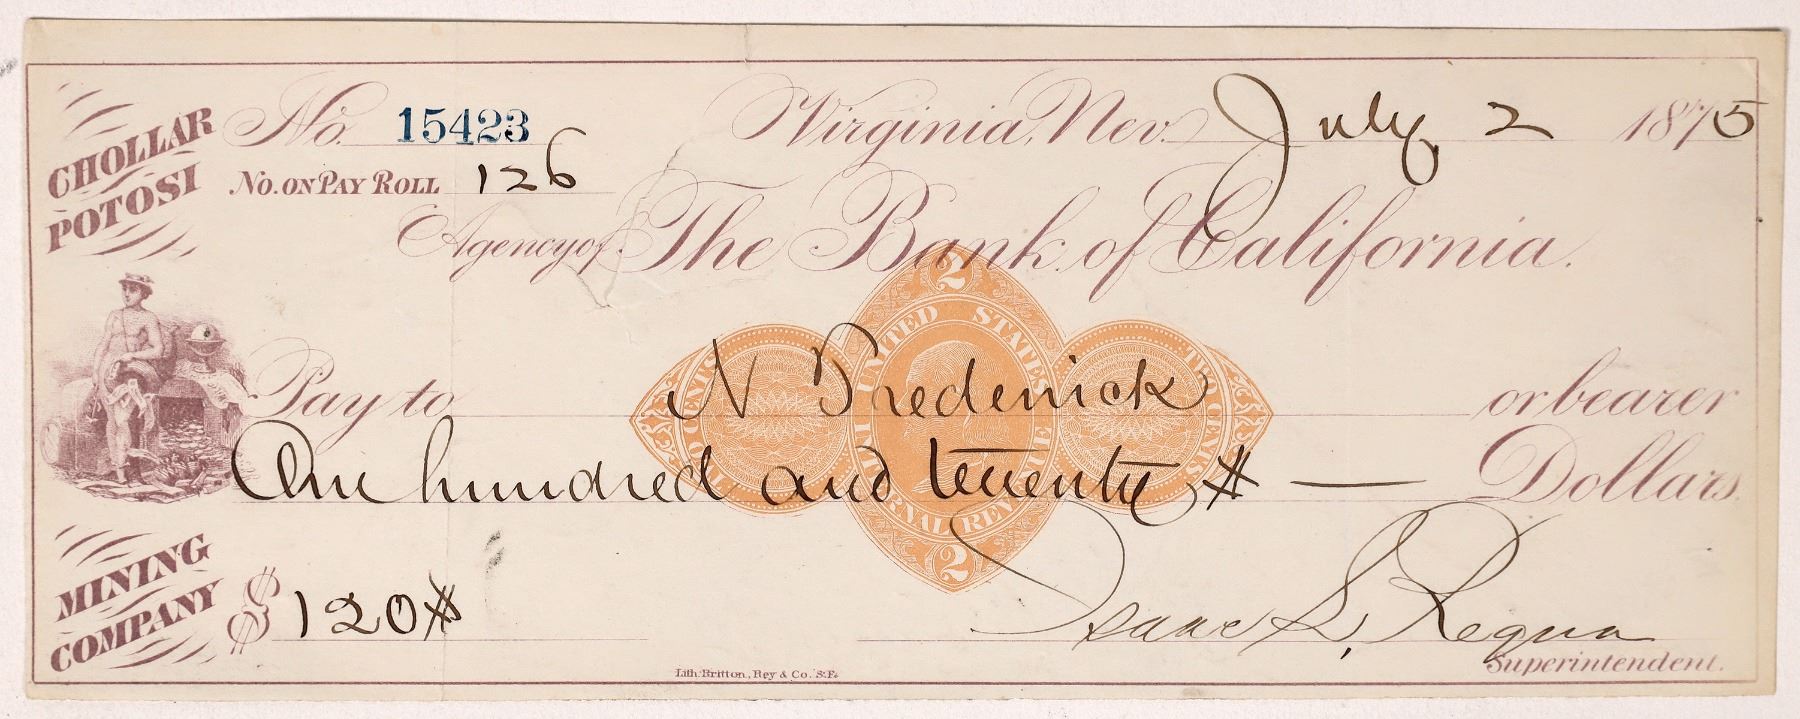 CHOLLAR
POTOSI
No. 15423
Virginia, Nev. July 2 1875
No. on Pay Roll 126
Agency of The Bank of California.
2
UNITED STATES
INTERNAL REVENUE
TWO CENTS
2
Pay to N Frederick or bearer
One hundred and twenty $ — Dollars.
MINING
COMPANY
$ 120 $
Isaac L. Requa
Superintendent.
Lith. Britton, Rey & Co. S.F.